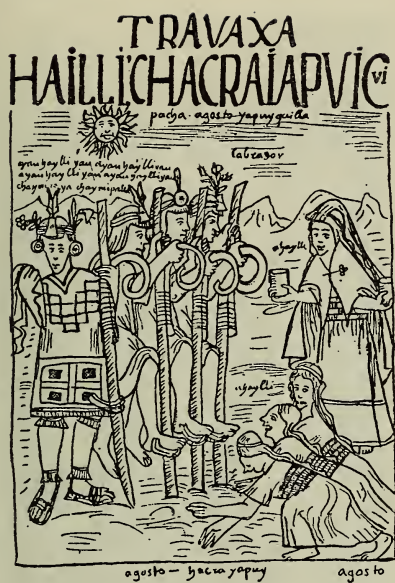 TRAVAXA
HAILLI'CHACRAIAPVIC vi
pacha · agosto - yapuy quilla
labrador
ayau haylli yau ayau haylli yau
ayau haylli yau ayau haylli yau
chaymi palla
ahaylli
ahaylli
agosto — hacra yapuy
agosto